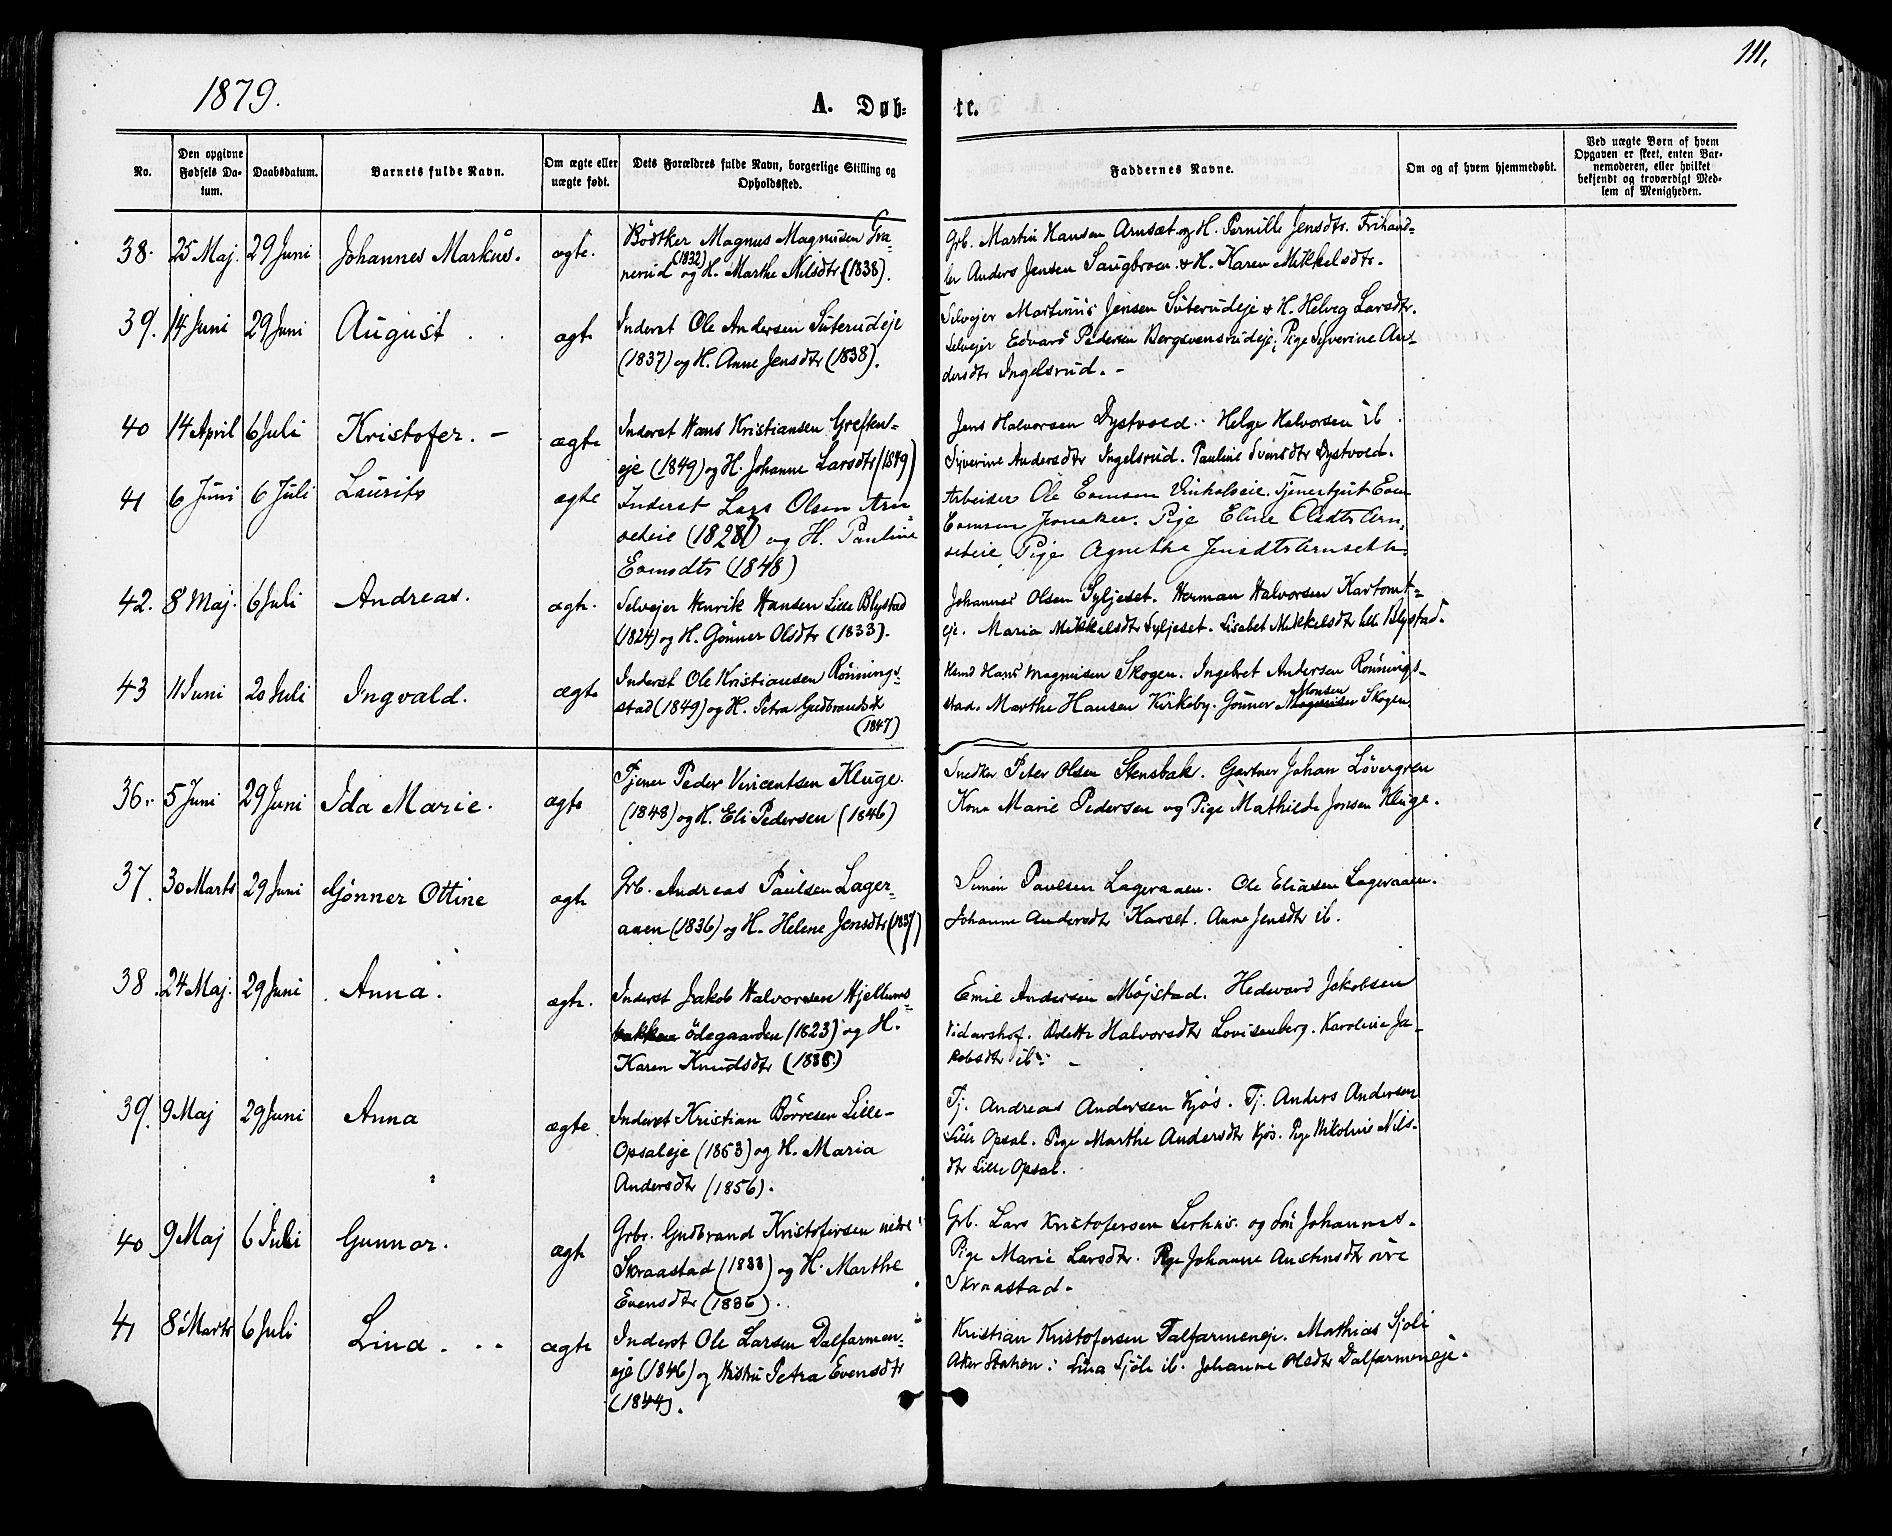 1879.
A. Døb-
te.
111.
No.
Den opgivne
Fødsels Da-
tum.
Daabsdatum.
Barnets fulde Navn.
Om ægte eller
uægte født.
Dets Forældres fulde Navn, borgerlige Stilling og
Opholdssted.
Faddernes Navne.
Om og af hvem hjemmedøbt.
Ved uægte Børn af hvem
Opgaven er skeet, enten Bar-
nemoderen, eller hvilket
bekjendt og troværdigt Med-
lem af Menigheden.
38. 25 Maj. 29 Juni Johannes Markus. ægte.
Bödtker Magnus Magnusen Gra-
nerud (1832) og H. Marthe Nilsdtr (1838).
Grb. Martin Hansen Arnset og H. Pernille Jensdtr. Frihand-
ler Anders Jensen Saugbroen & H. Karen Mikkelsdtr.
39. 14 Juni 29 Juni August ægte
Inderst Ole Andersen Suterudeje
(1837) og H. Anne Jensdtr (1838).
Selvejer Martinus Jensen Suterudeje & H. Helveg Larsdtr.
Selvejer Edvard Pedersen Bergsvensrudeje, Pige Syverine An-
dersdtr Ingelsrud. -
40 14 April 6 Juli Kristofer. - ægte
Inderst Hans Kristiansen Greften-
eje (1849) og H. Johanne Larsdtr (1849)
Jens Halvorsen Dystvold. Helge Halvorsen ib
Syverine Andersdtr Ingelsrud. Pauline Svensdtr Dystvold.
41 6 Juni 6 Juli Laurits ægte
Inderst Lars Olsen Arn-
seteie og H. Pauline
Evensdtr (1848)
Arbeider Ole Evensen Tjenergut Even
Evensen Pige Eline Olsdtr Arn-
seteie, Pige Agnethe Jensdtr Arnseth.
42. 8 Maj. 6 Juli Andreas. ægte.
Selvejer Henrik Hansen Lille Blystad
(1824) og H. Gönner Olsdtr (1833).
Johannes Olsen Syljeset. Herman Halvorsen Kartomt-
eje. Maria Mikkelsdtr Syljeset. Lisabet Mikkelsdtr lille Blystad.
43 11 Juni 20 Juli Ingvald. ægte
Inderst Ole Kristiansen Rönning-
stad (1849) og H. Petra Gudbrandsdtr
(1847)
Hans Magnusen Skogen. Ingebret Andersen Rönnings-
stad. Marthe Hansen Kirkeby. Gönner Monsen Skogen
36. 5 Juni 29 Juni Ida Marie. ægte
Tjener Peder Vincentsen Kluge.
(1848) og H. Eli Pedersen (1846)
Snedker Peter Olsen Stensbak. Gartner Johan Lövergren
Kone Marie Pedersen og Pige Mathilde Jonsen Kluge.
37. 30 Marts 29 Juni Gönner Ottine ægte
Grb. Andreas Paulsen Lager-
aaen (1836) og H. Helene Jensdtr (1837)
Simen Paulsen Lageraaen. Ole Eliasen Lageraaen.
Johanne Andersdtr Karset. Anne Jensdtr ib.
38. 24 Maj. 29 Juni Anna. ægte.
Inderst Jakob Halvorsen Hjellums-
bakken ödegaarden (1823) og H.
Karen Knudsdtr (1838)
Emil Andersen Möjstad. Hedevard Jakobsen
Vidarshof. Bolette Halvorsdtr Lovisenberg. Karoline Ja-
kobsdtr ib. -
39. 9 Maj 29 Juni Anna ægte
Inderst Kristian Börresen Lille-
Opsaleje (1853) og H. Maria
Andersdtr (1856).
Tj. Andreas Andersen Kjös. Tj. Anders Andersen
Lille Opsal. Pige Marthe Andersdtr Kjös. Pige Nikoline Nils-
dtr Lille Opsal.
40 9 Maj 6 Juli Gunnar. ægte
Grbr. Gudbrand Kristofersen nedre
Skraastad (1833) og H. Marthe
Evensdtr (1836).
Grb. Lars Kristofersen Lerhus. og Sön Johannes.
Pige Marie Larsdtr. Pige Johanne Austensdtr övre
Skraastad.
41 8 Marts 6 Juli Lina. ægte
Inderst Ole Larsen Dalfarmen-
eje (1846) og Hustru Petra Evensdtr
(1844).
Kristian Kristofersen Dalfarmeneje. Mathias Sjöli
Aker Station. Lina Sjöli ib. Johanne Olsdtr Dalfarmeneje.